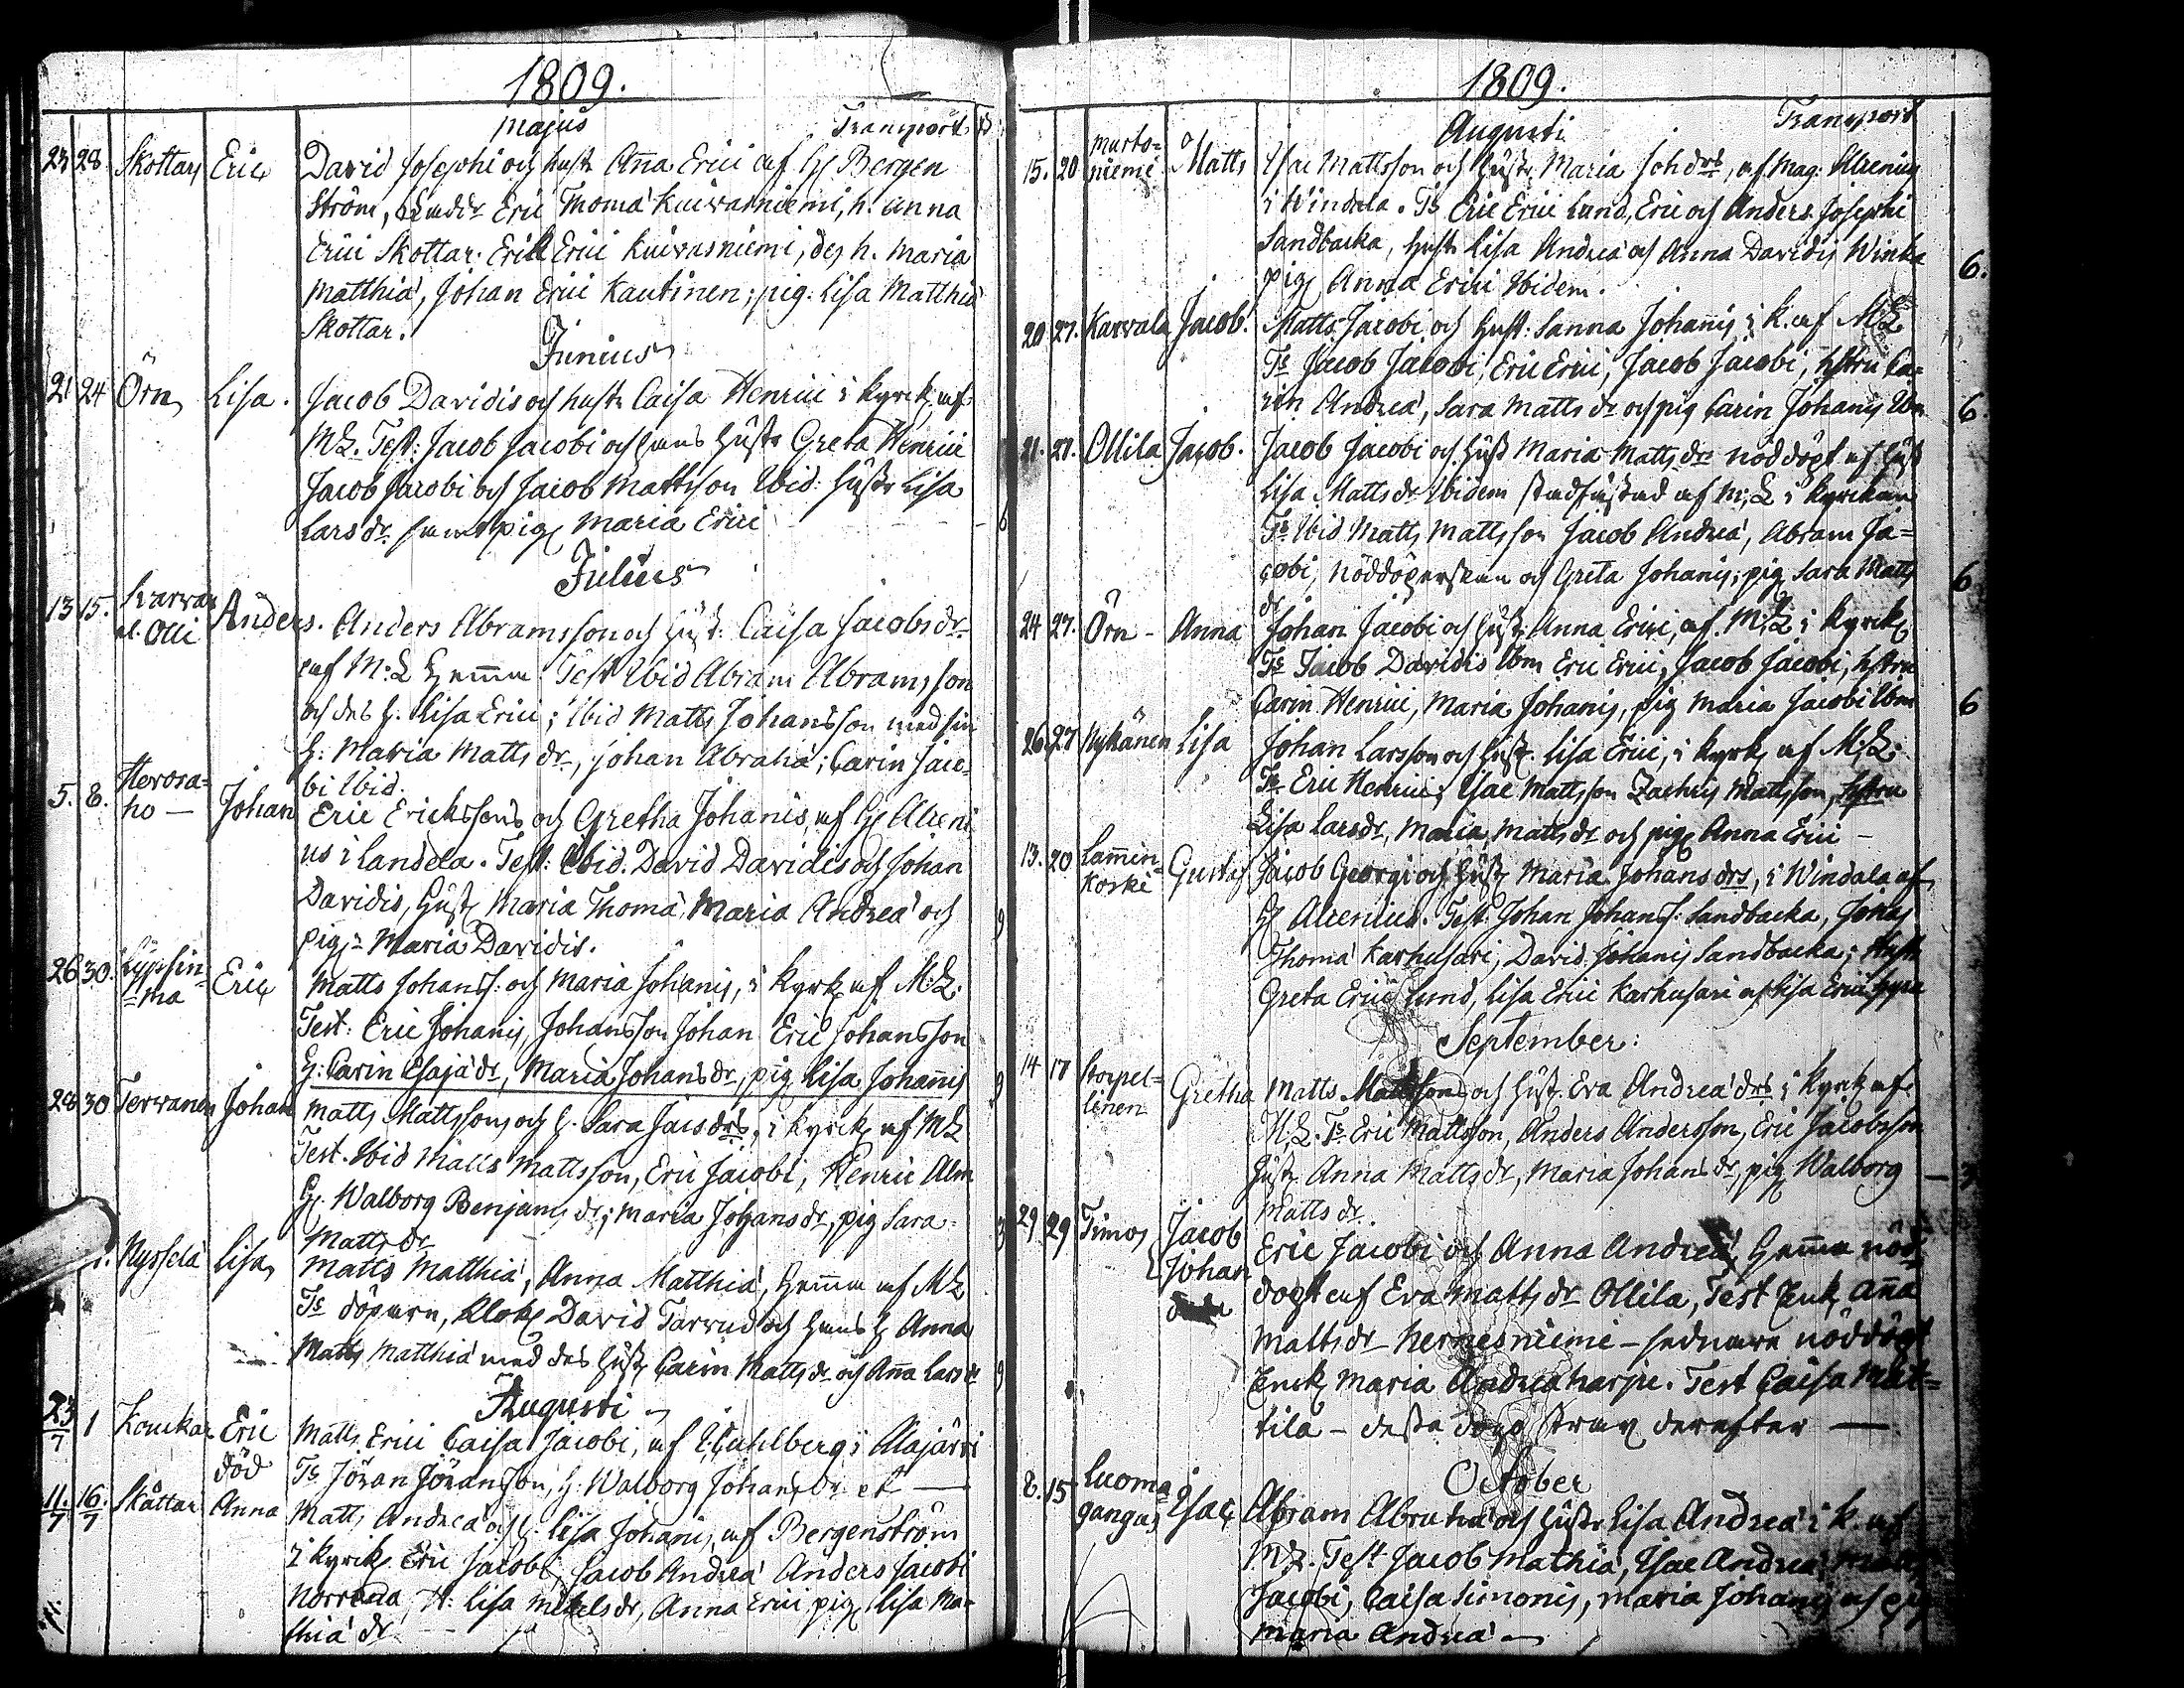 1809.
Majus Transport
23 28 Skottar Eric David Josephi och hustr Anna Erici af H Bergen
ström, Thoma Kuivasniemi, h. Anna
Erici Skottar. Erik Erici Kuivasniemi, des h. Maria
Matthiæ, Johan Erici Kautinen; pig. Lisa Matthiæ
Skottar.
Junius
21 24 Örn Lisa. Jacob Davidis och hustr Caisa Henrici i kyrck. af
M.L. Test: Jacob Jacobi och hans hustr Greta Henrici
Jacob Jacobi och Jacob Mattsson Ibid: hustr Lisa
Lars dr. samt pig Maria Erici 6
Julius
13 15. Karvar
al. Olli Anders. Anders Abramsson och hust: Caisa Jacobs dr
af M:L hemma. Test Ibid Abram Abramsson
och des h. Lisa Erici; Ibid Matts Johansson med sin
h: Maria Matts dr, Johan Abrahā; Carin Jaco-
bi Ibid.
5. 8. Hevosa=
ho — Johan Eric Erickssons och Gretha Johanis, af H Alceni
us i Landela. Test: Ibid. David Davidis och Johan
Davidis, hust Maria Thoma, Maria Andreæ och
pig: Maria Davidis. 9
26 30. Lypsin=
=ma Eric Matts Johans s: och Maria Johanis, i kyrk af M:L.
Test: Eric Johanis, Johansson Johan Eric Johansson
h: Carin Esajæ dr, Maria Johans dr, pig Lisa Johanis 9
28 30 Tervanen Johan Matts Mattssons och h. Sara Jacs drs, i kyrck af ML
Test. Ibid Matts Mattsson, Eric Jacobi, Henric Alm
h. Walborg Benjams dr; Maria Johans dr, pig Sara 3
Matts dr
Nysselä Lisa Matts Matthiæ, Anna Matthiæ, hemma af ML
Ts döparn, Klok David Tarvud och hans h Anna
Matts Matthiæ med des hustr Carin Matts dr och Ana Lars dr 9
Augusti
23/7 1 Kouckar Eric
död Matts Erici Caisa Jacobi, af C. Cahlberg i Alajärvi
Ts Jöran Jöransson, h: Walborg Johans dr et —
11./7 16./7 Skåttar Anna Matts Andreæ och h: Lisa Johanis, af Bergenström
i kyrck Eric Jacobi, Jacob Andreæ Anders Jacobi
Norrena H: Lisa Mikels dr, Anna Erici pig Lisa Ma-
thiæ dr
1809.
Augusti Transport
15. 20 Murto=
niemi Matts Isac Mattsson och hustr Maria Joh drs, af Mag: Alcenius
i Windala. Ts Eric Erici Lund, Eric och Anders Josephi
Sandbacka, hustr Lisa Andreæ och Anna Davidis Winka
pig Anna Erici Ibidem. 6.
20 27. Karvala Jacob. Matts Jacobi och hust: Sanna Johanis i k. af M.L
Ts Jacob Jacobi, Eric Erici, Jacob Jacobi, hstru Ca=
rin Andreæ, Sara Matts dr och pig Carin Johanis Ibm 6.
21. 27. Ollila Jacob. Jacob Jacobi och hust Maria Matts dr nöddöpt af hust
Lisa Matts dr Ibidem stadfästad af M:L i kyrckan
Ts Ibid Matts Mattsson Jacob Andreæ, Abram Ja=
cobi, nöddöperskan och Greta Johanis; pig Sara Matts
dr 6
24 27. Örn - Anna Johan Jacobi och hust: Anna Erici, af. M:L i kyrck
Ts Jacob Davidis Ibm Eric Erici, Jacob Jacobi, hstru
Carin Henrici, Maria Johanis, pig Maria Jacobi Ibm 6
26 27 Nykänen Lisa Johan Larsson och hust. Lisa Erici, i kyrk af M:L
Ts Eric Henrici, Isac Mattsson Zachris Mattsson, hstru
Lisa Lars dr, Maria Matts dr och pig Anna Erici —
13. 20 Lamin=
koski Gustaf Jacob Georgi och hustr Maria Johans drs, i Windala af
H Alcenius. Test: Johan Johans s. Sandbacka, Jonas
Thoma Karhusari, David Johanis Sandbacka; Hust
Greta Erici Lund, Lisa Erici Karhusari och Lisa Erici
September:
14 17 Korpel=
linen Gretha Matts Mattssons och hust. Eva Andreæ drs i kyrk af
M,L. Ts Eric Mattsson, Anders Andersson, Eric Jacobsson
hustr Anna Matts dr, Maria Johans dr, pig Walborg — 3
Matts dr
29. 29 Timos Jacob
Johan
Eric Jacobi och Anna Andreæ, hemma nöd=
döpt af Eva Matts dr Ollila, Test Enk Ana
Matts dr Hernesniemi — sednare nöddöpt
Enck Maria Andreæ Harju. Test Caisa Mat=
tila — desse dogo strax derefter —
October
8. 15 Luoma=
gangas Isac Abram Abrahæ och hustr Lisa Andreæ i k. af
M.L. Test Jacob Mathiæ, Isac Andreæ
Jacobi, Caisa Simonis, Maria Johanis och pig
Maria Andreæ —